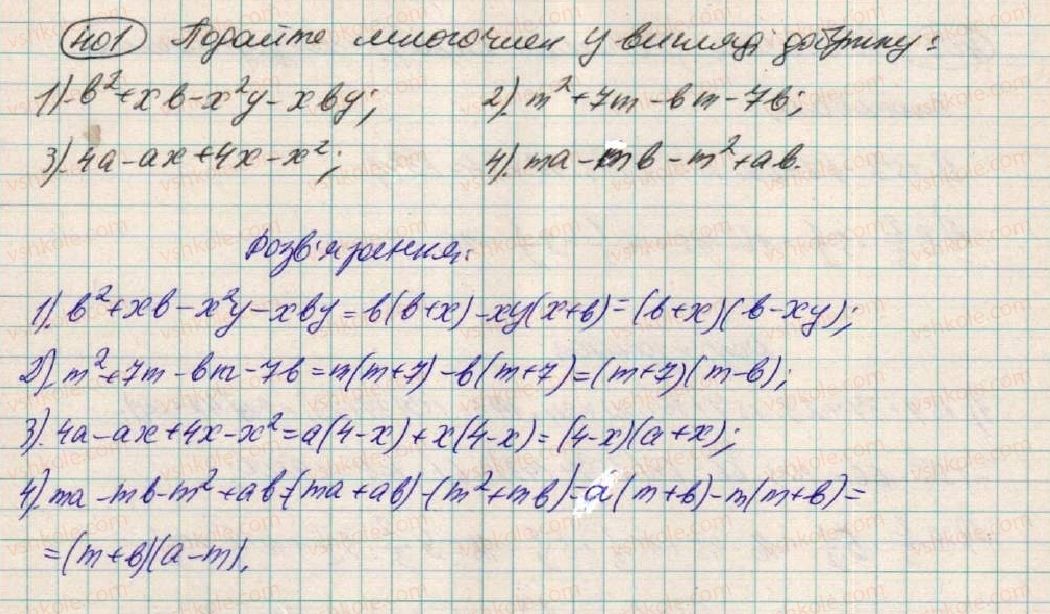 401 Подайте многочлен у вигляді добутку:
1). b²+xb-x²y-xby; 2). m²+7m-bm-7b;
3). 4a-ax+4x-x²; 4). ma-mb-m²+ab.
Розв'язання:
1). b²+xb-x²y-xby=b(b+x)-xy(x+b)=(b+x)(b-xy);
2). m²+7m-bm-7b=m(m+7)-b(m+7)=(m+7)(m-b);
3). 4a-ax+4x-x²=a(4-x)+x(4-x)=(4-x)(a+x);
4). ma-mb-m²+ab=(ma+ab)-(m²+mb)=a(m+b)-m(m+b)=
=(m+b)(a-m).